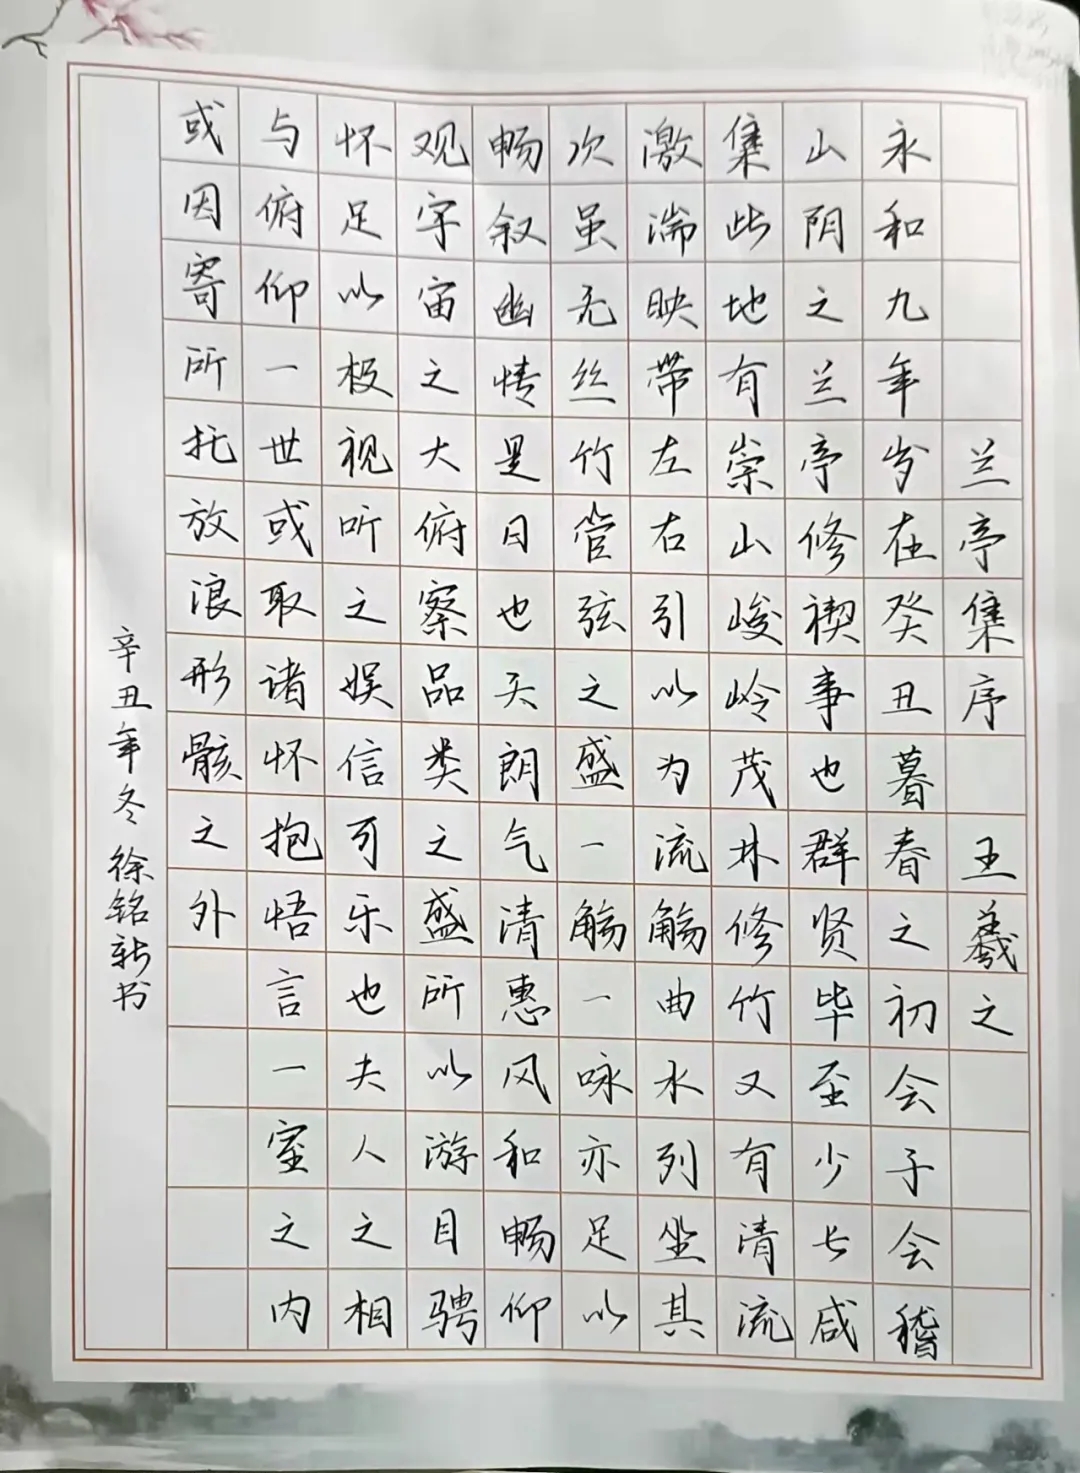 兰亭集序 王羲之
永和九年岁在癸丑暮春之初会子会稽
山阴之兰亭修禊事也群贤毕至少长咸
集此地有崇山峻岭茂林修竹又有清流
激湍映带左右引以为流觞曲水列坐其
次虽无丝竹管弦之盛一觞一咏亦足以
畅叙幽情是日也天朗气清惠风和畅仰
观宇宙之大俯察品类之盛所以游目骋
怀足以极视听之娱信可乐也夫人之相
与俯仰一世或取诸怀抱悟言一室之内
或因寄所托放浪形骸之外
辛丑年冬徐铭新书